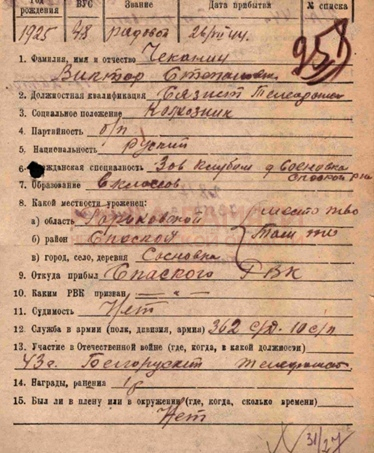 Год рождения ВУС Звание Дата прибытия № списка
1925 48 рядовой 26/VII 44. 257
1. Фамилия, имя и отчество Чекалин
Виктор Степанович
2. Должностная квалификация Связист Телефонист
3. Социальное положение Колхозник
4. Партийность б/п
5. Национальность Руский
6. Гражданская специальность Зав клубом д Сосновка
Спаской р на
7. Образование 6 классов
8. Какой местности уроженец: место тво
а) область Горьковской
б) район Спаской Там же
в) город, село, деревня Сосновка
9. Откуда прибыл Спаского РВК
10. Каким РВК призван — " —
11. Судимость Нет
12. Служба в армии (полк, дивизия, армия) 362 с/д. 10 с/п
13. Участие в Отечественной войне (где, когда, в какой должности)
43 г. Телефонист
14. Награды, ранения
15. Был ли в плену или в окружении (где, когда, сколько времени)
Нет
31/27